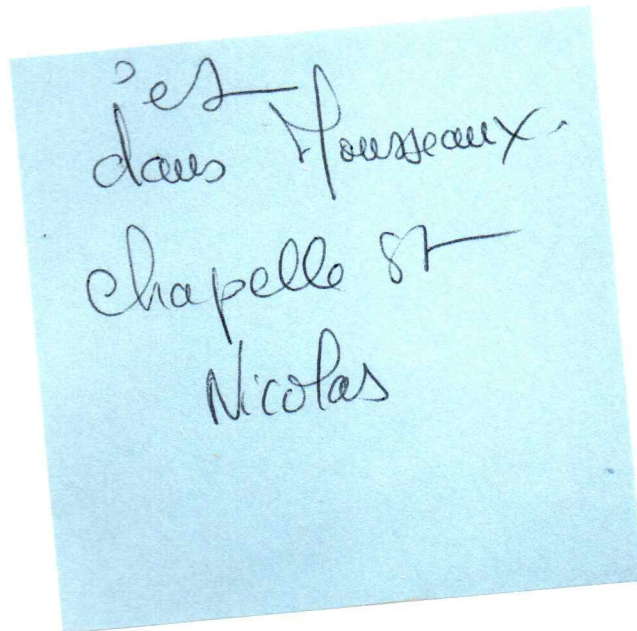 est
dans Mousseaux.
Chapelle St
Nicolas